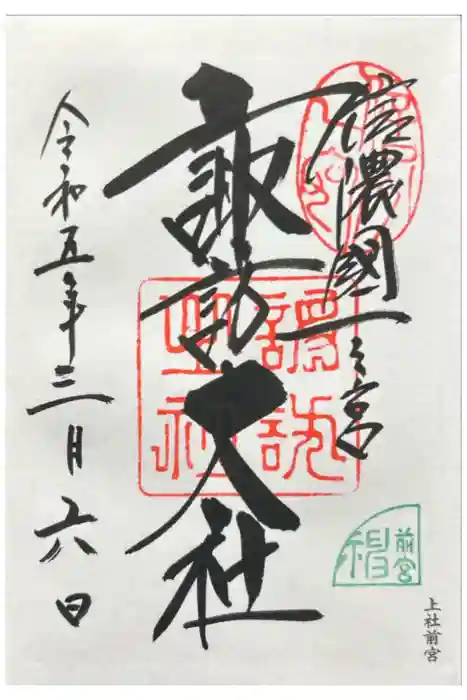 信濃國一之宮
諏訪大社
令和五年三月六日
諏訪
前宮
上社前宮